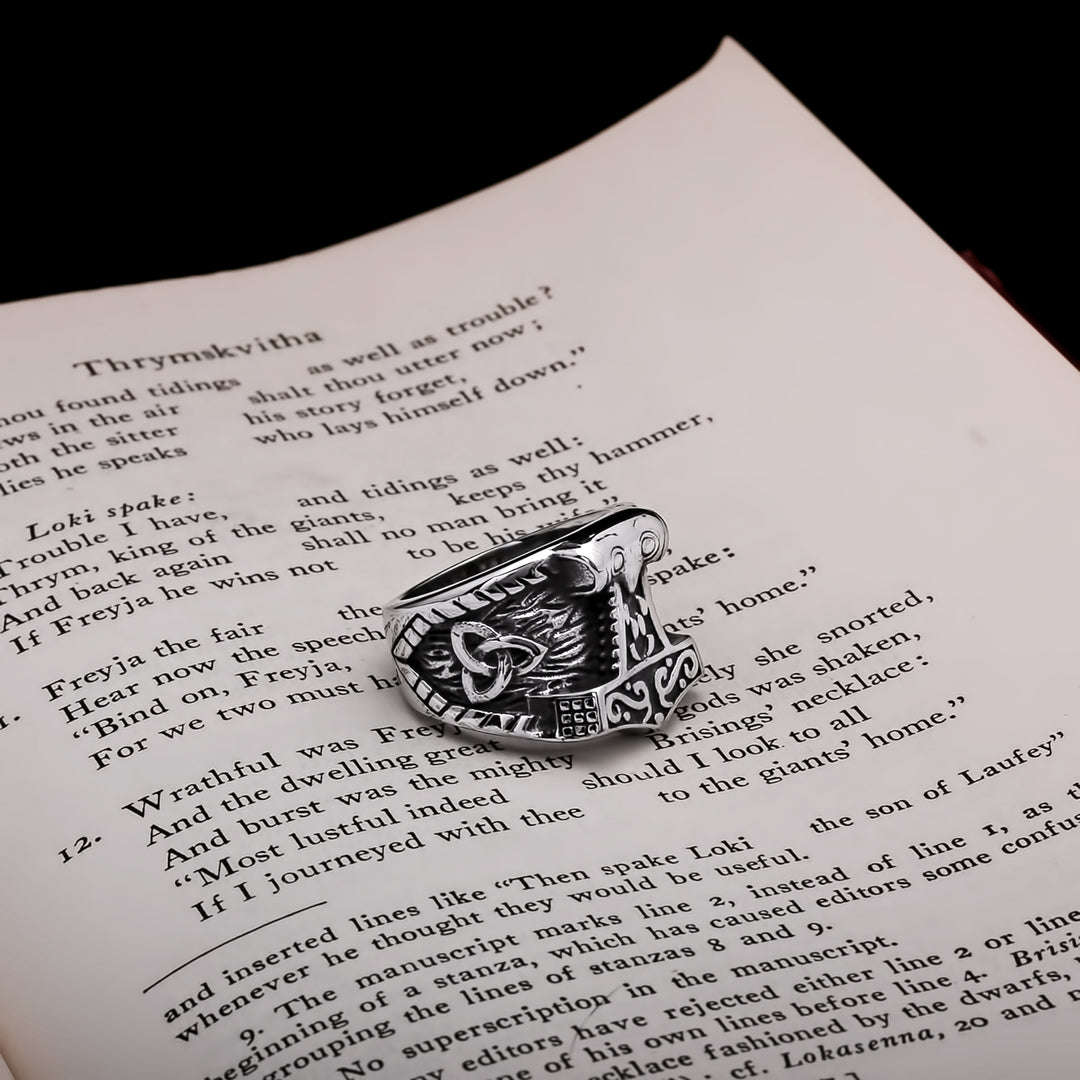 Thrymskvitha
thou found tidings as well as trouble?
in the air shalt thou utter now;
the sitter his story forget,
lies he speaks who lays himself down."
Loki spake:
Trouble I have, and tidings as well:
Thrym, king of the giants, keeps thy hammer,
And back again shall no man bring it
If Freyja he wins not to be his wife."
Freyja the fair the
Hear now the speech spake:
"Bind on, Freyja,
For we two must home."
12. Wrathful was she snorted,
And the dwelling great gods was shaken,
And burst was the mighty Brisings' necklace:
"Most lustful indeed should I look to all
If I journeyed with thee to the giants' home."
and inserted lines like "Then spake Loki the son of Laufey"
whenever he thought they would be useful.
9. The manuscript marks line 2, instead of line 1, as
beginning of a stanza, which has caused editors some
grouping the lines of stanzas 8 and 9.
No superscription in the manuscript.
editors have rejected either line 2 or line
of his own lines before line 4.
necklace fashioned by the dwarfs,
cf. Lokasenna, 20 and